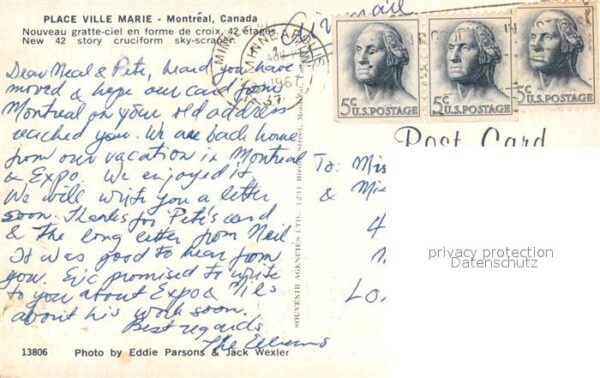 PLACE VILLE MARIE - Montréal, Canada
Nouveau gratte-ciel en forme de croix, 42 étages.
New 42 story cruciform sky-scraper.
Dear Neal & Pete, heard you have
moved & hope our card from
Montreal on your old address
reached you. We are back home
from our vacation in Montreal
& Expo. We enjoyed it
We will write you a letter
soon. Thanks for Pete's card
& the long letter from Neil
It was good to hear from
you. Eric promised to write
to you about Expo &
about his work soon.
Best regards
The
13806 Photo by Eddie Parsons & Jack Wexler
SOUVENIR AGENCIES LTD., Montreal
MINNEAPOLIS
MINN
196
Air mail
5¢ U.S. POSTAGE
5¢ U.S. POSTAGE
5¢ U.S. POSTAGE
Post Card
To:
&
4
privacy protection
Datenschutz